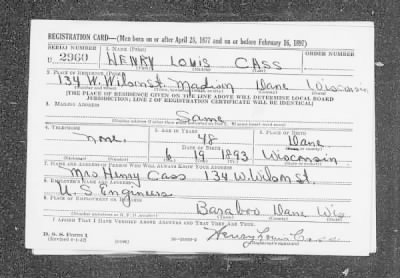 REGISTRATION CARD—(Men born on or after April 28, 1877 and on or before February 16, 1897)
SERIAL NUMBER 1. NAME (Print) ORDER NUMBER
U 2960 HENRY LOUIS CASS
2. PLACE OF RESIDENCE (Print)
134 W. Wilson St. Madison Dane Wisconsin
[THE PLACE OF RESIDENCE GIVEN ON THE LINE ABOVE WILL DETERMINE LOCAL BOARD
JURISDICTION; LINE 2 OF REGISTRATION CERTIFICATE WILL BE IDENTICAL]
3. MAILING ADDRESS
Same
4. TELEPHONE 5. AGE IN YEARS 6. PLACE OF BIRTH
none 48 Dane
DATE OF BIRTH
6 19 1893 Wisconsin
7. NAME AND ADDRESS OF PERSON WHO WILL ALWAYS KNOW YOUR ADDRESS
Mrs Henry Cass 134 W. Wilson St.
8. EMPLOYER'S NAME AND ADDRESS
U.S. Engineers
9. PLACE OF EMPLOYMENT OR BUSINESS
Baraboo Dane Wis
I AFFIRM THAT I HAVE VERIFIED ABOVE ANSWERS AND THAT THEY ARE TRUE.
D. S. S. Form 1
(Revised 4-1-42) Henry Louis Cass
(Registrant's signature)